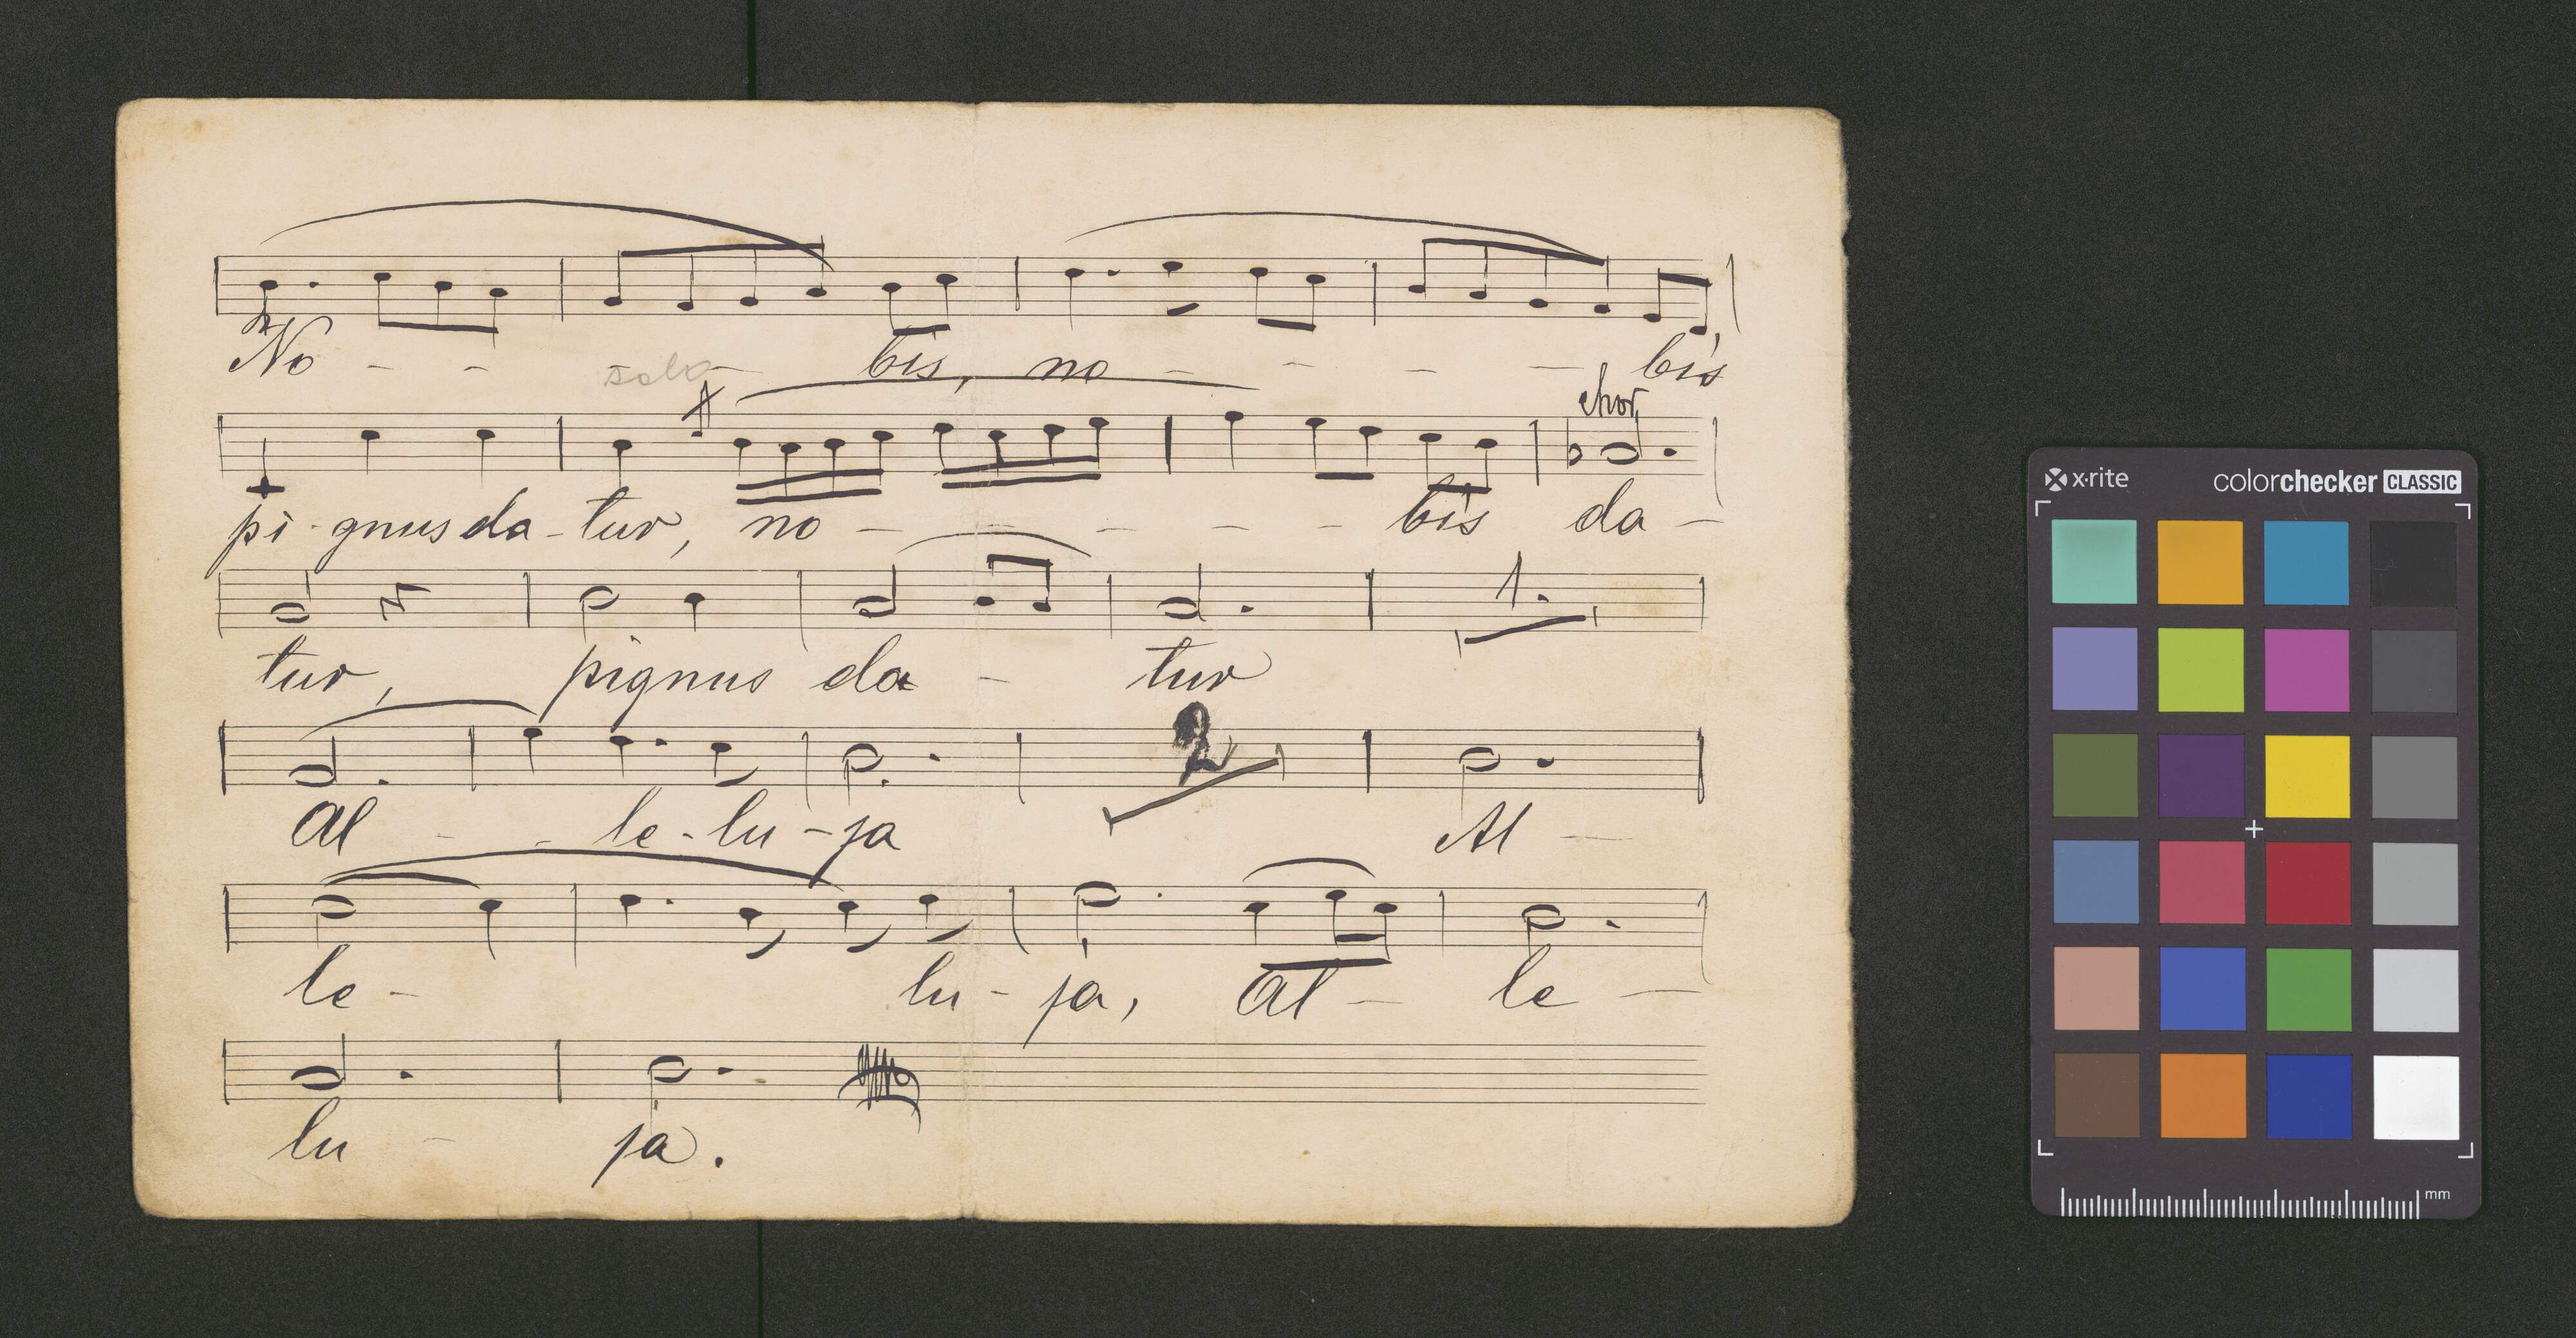 No - - solo - bis, no - - - - bis
chor
pi-gnus da-tur, no - - - - - bis da -
1.
tur, pignus da - tur
2
Al - - le-lu-ja Al -
le - lu - ja, al - le -
lu - ja.
x·rite colorchecker CLASSIC
mm